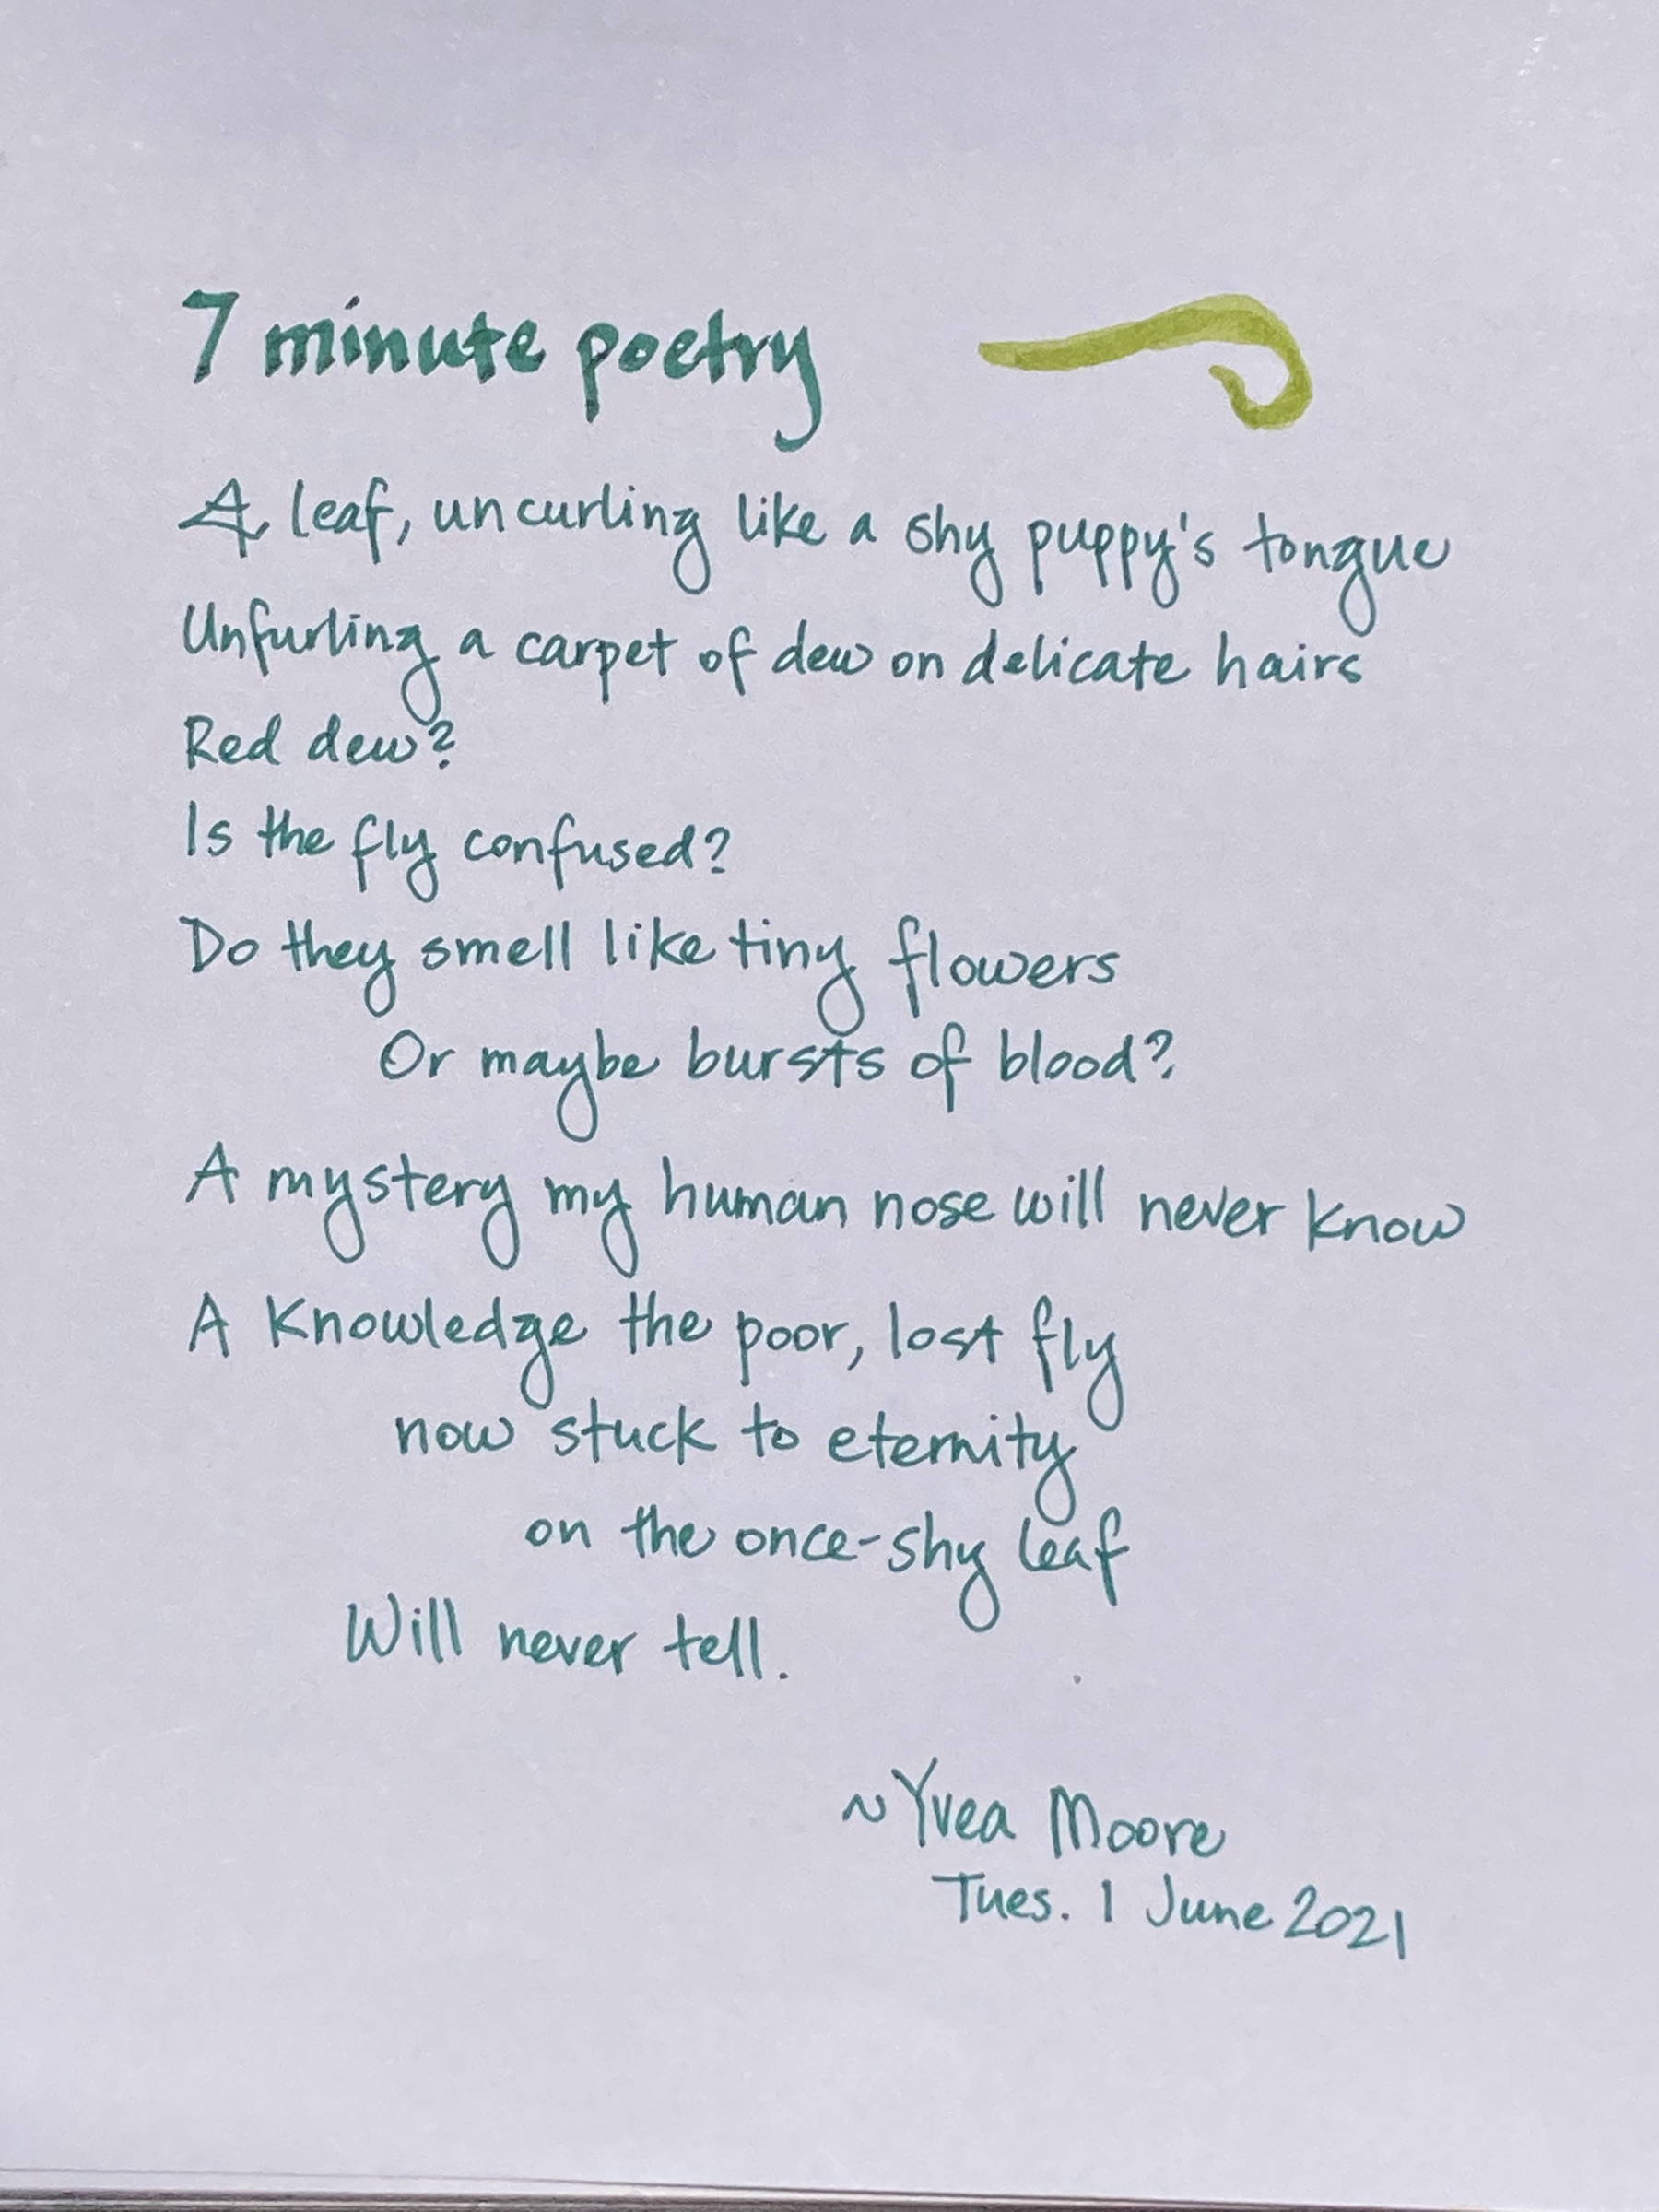 7 minute poetry
A leaf, uncurling like a shy puppy's tongue
Unfurling a carpet of dew on delicate hairs
Red dew?
Is the fly confused?
Do they smell like tiny flowers
Or maybe bursts of blood?
A mystery my human nose will never know
A Knowledge the poor, lost fly
now stuck to eternity
on the once-shy leaf
Will never tell.
~Yvea Moore
Tues. 1 June 2021